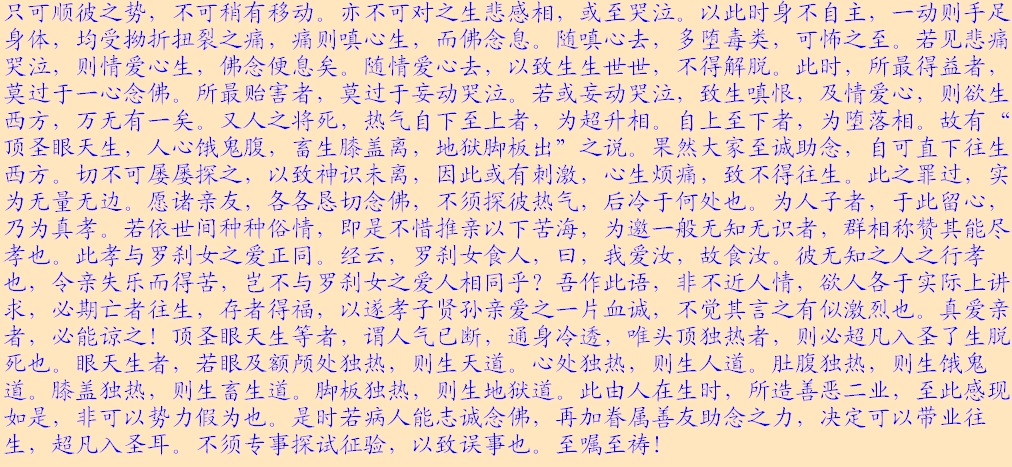 只可顺彼之势，不可稍有移动。亦不可对之生悲感相，或至哭泣。以此时身不自主，一动则手足
身体，均受拗折扭裂之痛，痛则嗔心生，而佛念息。随嗔心去，多堕毒类，可怖之至。若见悲痛
哭泣，则情爱心生，佛念便息矣。随情爱心去，以致生生世世，不得解脱。此时，所最得益者，
莫过于一心念佛。所最贻害者，莫过于妄动哭泣。若或妄动哭泣，致生嗔恨，及情爱心，则欲生
西方，万无有一矣。又人之将死，热气自下至上者，为超升相。自上至下者，为堕落相。故有“
顶圣眼天生，人心饿鬼腹，畜生膝盖离，地狱脚板出”之说。果然大家至诚助念，自可直下往生
西方。切不可屡屡探之，以致神识未离，因此或有刺激，心生烦痛，致不得往生。此之罪过，实
为无量无边。愿诸亲友，各各恳切念佛，不须探彼热气，后冷于何处也。为人子者，于此留心，
乃为真孝。若依世间种种俗情，即是不惜推亲以下苦海，为邀一般无知无识者，群相称赞其能尽
孝也。此孝与罗刹女之爱正同。经云，罗刹女食人，曰，我爱汝，故食汝。彼无知之人之行孝
也，令亲失乐而得苦，岂不与罗刹女之爱人相同乎？吾作此语，非不近人情，欲人各于实际上讲
求，必期亡者往生，存者得福，以遂孝子贤孙亲爱之一片血诚，不觉其言之有似激烈也。真爱亲
者，必能谅之！顶圣眼天生等者，谓人气已断，通身冷透，唯头顶独热者，则必超凡入圣了生脱
死也。眼天生者，若眼及额颅处独热，则生天道。心处独热，则生人道。肚腹独热，则生饿鬼
道。膝盖独热，则生畜生道。脚板独热，则生地狱道。此由人在生时，所造善恶二业，至此感现
如是，非可以势力假为也。是时若病人能志诚念佛，再加眷属善友助念之力，决定可以带业往
生，超凡入圣耳。不须专事探试征验，以致误事也。至嘱至祷！